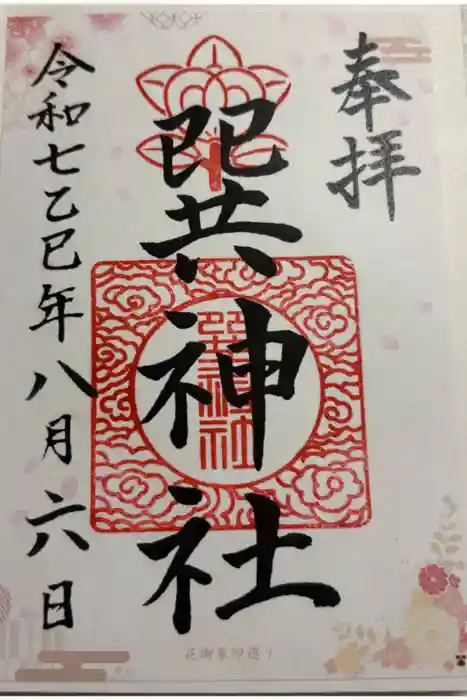 奉拝
巽神社
令和七乙巳年八月六日
花御朱印巡り